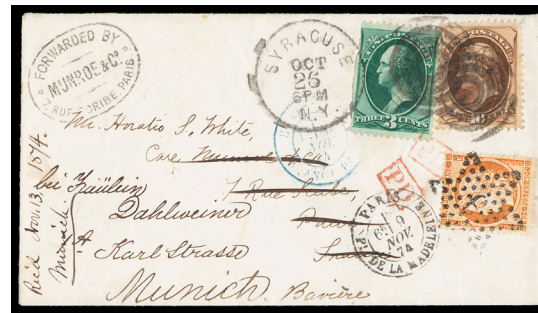 FORWARDED BY
MUNROE & Co.
7, RUE SCRIBE, PARIS
SYRACUSE
OCT
26
6PM
N.Y.
THREE 3 CENTS
Mr. Horatio S. White,
Care Munroe & Co.
7 Rue Scribe,
Paris
France
bei Fräulein
Dahlweiner
Karl Strasse
Munich. Bavière
Rec'd Nov. 13, 1874.
Munich.
PARIS
9
NOV.
74
DE LA MADELEINE